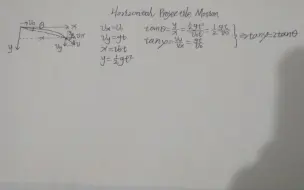 Horizontal Projectile Motion
x
y
Vy=gt
x=v₀t
y=½gt²
tanθ=y/x=½gt²/v₀t=½·gt/v₀
tanγ=Vy/V₀=gt/v₀
⇒tanγ=2tanθ